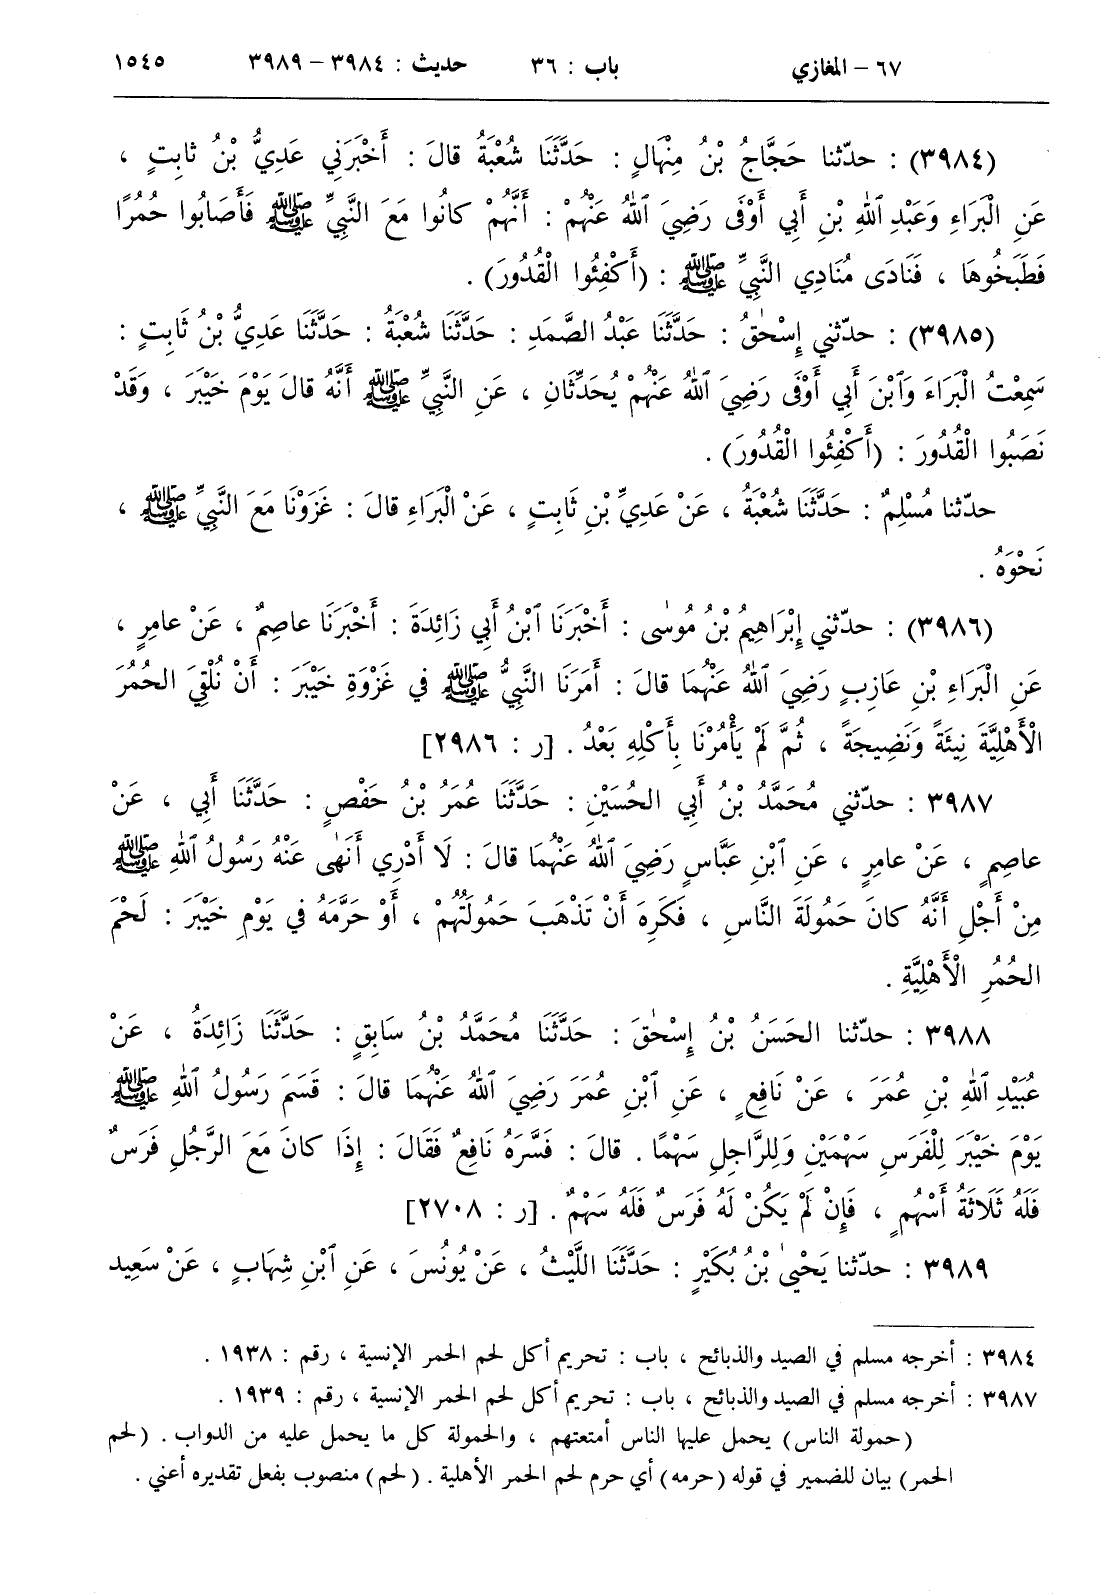 ٦٧ – المغازي باب : ٣٦ حديث : ٣٩٨٤ – ٣٩٨٩ ١٥٤٥
(٣٩٨٤) : حدّثنا حَجَّاجُ بْنُ مِنْهَالٍ : حَدَّثَنَا شُعْبَةُ قالَ : أَخْبَرَنِي عَدِيُّ بْنُ ثابِتٍ ،
عَنِ الْبَرَاءِ وَعَبْدِ ٱللهِ بْنِ أَبِي أَوْفَى رَضِيَ ٱللهُ عَنْهُمْ : أَنَّهُمْ كانُوا مَعَ النَّبِيِّ ﷺ فَأَصَابُوا حُمُرًا
فَطَبَخُوهَا ، فَنَادَى مُنَادِي النَّبِيِّ ﷺ : (أَكْفِئُوا الْقُدُورَ) .
(٣٩٨٥) : حدّثني إِسْحٰقُ : حَدَّثَنَا عَبْدُ الصَّمَدِ : حَدَّثَنَا شُعْبَةُ : حَدَّثَنَا عَدِيُّ بْنُ ثَابِتٍ :
سَمِعْتُ الْبَرَاءَ وَٱبْنَ أَبِي أَوْفَى رَضِيَ ٱللهُ عَنْهُمْ يُحَدِّثَانِ ، عَنِ النَّبِيِّ ﷺ أَنَّهُ قالَ يَوْمَ خَيْبَرَ ، وَقَدْ
نَصَبُوا الْقُدُورَ : (أَكْفِئُوا الْقُدُورَ) .
حدّثنا مُسْلِمٌ : حَدَّثَنَا شُعْبَةُ ، عَنْ عَدِيِّ بْنِ ثَابِتٍ ، عَنْ الْبَرَاءِ قالَ : غَزَوْنَا مَعَ النَّبِيِّ ﷺ ،
نَحْوَهُ .
(٣٩٨٦) : حدّثني إِبْرَاهِيمُ بْنُ مُوسٰى : أَخْبَرَنَا ٱبْنُ أَبِي زَائِدَةَ : أَخْبَرَنَا عاصِمٌ ، عَنْ عامِرٍ ،
عَنِ الْبَرَاءِ بْنِ عَازِبٍ رَضِيَ ٱللهُ عَنْهُمَا قالَ : أَمَرَنَا النَّبِيُّ ﷺ في غَزْوَةِ خَيْبَرَ : أَنْ نُلْقِيَ الحُمُرَ
الْأَهْلِيَّةَ نِيئَةً وَنَضِيجَةً ، ثُمَّ لَمْ يَأْمُرْنَا بِأَكْلِهِ بَعْدُ . [ر : ٢٩٨٦]
٣٩٨٧ : حدّثني مُحَمَّدُ بْنُ أَبِي الحُسَيْنِ : حَدَّثَنَا عُمَرُ بْنُ حَفْصٍ : حَدَّثَنَا أَبِي ، عَنْ
عاصِمٍ ، عَنْ عامِرٍ ، عَنِ ٱبْنِ عَبَّاسٍ رَضِيَ ٱللهُ عَنْهُمَا قالَ : لَا أَدْرِي أَنَهٰى عَنْهُ رَسُولُ ٱللهِ ﷺ
مِنْ أَجْلِ أَنَّهُ كانَ حَمُولَةَ النَّاسِ ، فَكَرِهَ أَنْ تَذْهَبَ حَمُولَتُهُمْ ، أَوْ حَرَّمَهُ في يَوْمِ خَيْبَرَ : لَحْمَ
الحُمُرِ الْأَهْلِيَّةِ .
٣٩٨٨ : حدّثنا الحَسَنُ بْنُ إِسْحٰقَ : حَدَّثَنَا مُحَمَّدُ بْنُ سَابِقٍ : حَدَّثَنَا زَائِدَةُ ، عَنْ
عُبَيْدِ ٱللهِ بْنِ عُمَرَ ، عَنْ نَافِعٍ ، عَنِ ٱبْنِ عُمَرَ رَضِيَ ٱللهُ عَنْهُمَا قالَ : قَسَمَ رَسُولُ ٱللهِ ﷺ
يَوْمَ خَيْبَرَ لِلْفَرَسِ سَهْمَيْنِ وَلِلرَّاجِلِ سَهْمًا . قالَ : فَسَّرَهُ نَافِعٌ فَقَالَ : إِذَا كانَ مَعَ الرَّجُلِ فَرَسٌ
فَلَهُ ثَلَاثَةُ أَسْهُمٍ ، فَإِنْ لَمْ يَكُنْ لَهُ فَرَسٌ فَلَهُ سَهْمٌ . [ر : ٢٧٠٨]
٣٩٨٩ : حدّثنا يَحْيىٰ بْنُ بُكَيْرٍ : حَدَّثَنَا اللَّيْثُ ، عَنْ يُونُسَ ، عَنِ ٱبْنِ شِهَابٍ ، عَنْ سَعِيدِ
٣٩٨٤ : أخرجه مسلم في الصيد والذبائح ، باب : تحريم أكل لحم الحمر الإنسية ، رقم : ١٩٣٨ .
٣٩٨٧ : أخرجه مسلم في الصيد والذبائح ، باب : تحريم أكل لحم الحمر الإنسية ، رقم : ١٩٣٩ .
(حمولة الناس) يحمل عليها الناس أمتعتهم ، والحمولة كل ما يحمل عليه من الدواب . (لحم
الحمر) بيان للضمير في قوله (حرمه) أي حرم لحم الحمر الأهلية . (لحم) منصوب بفعل تقديره أعني .